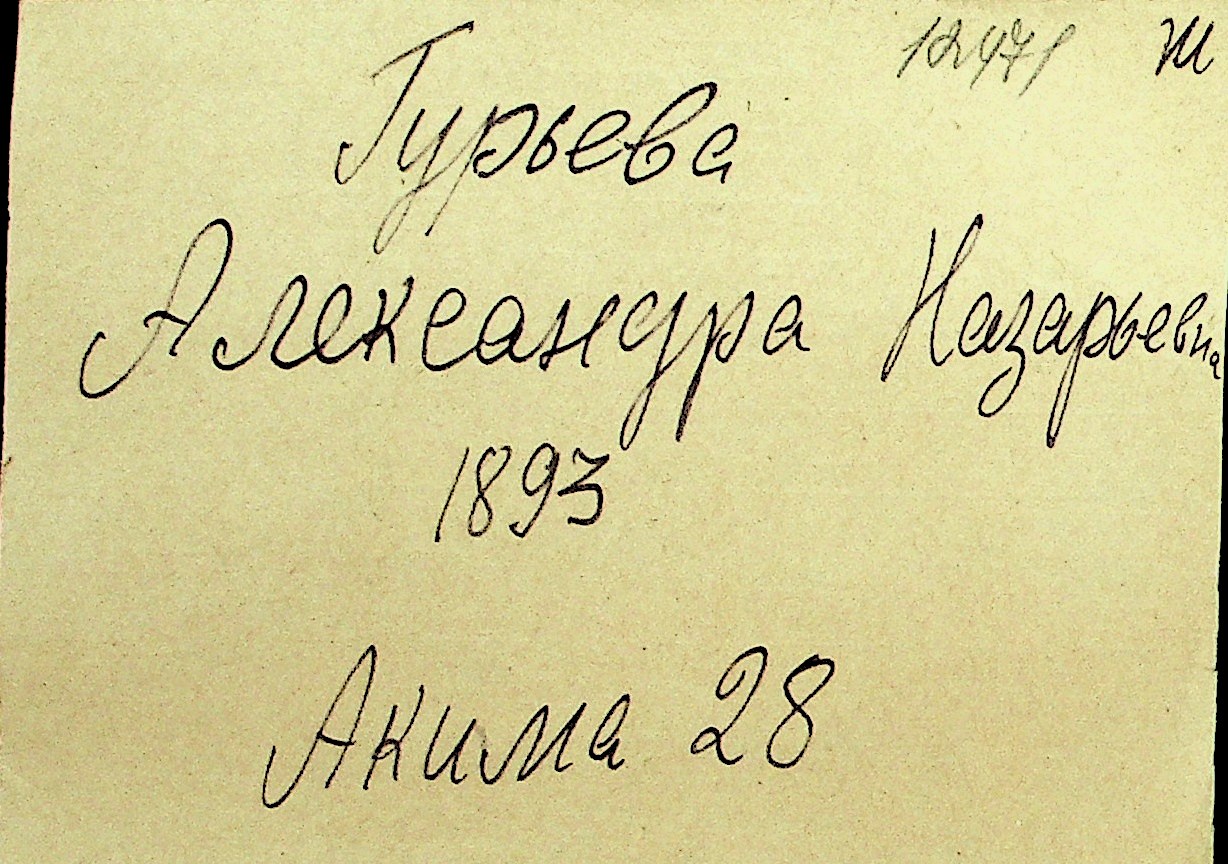 12471 Ж
Гурьева
Александра Назарьевна
1893
Акима 28